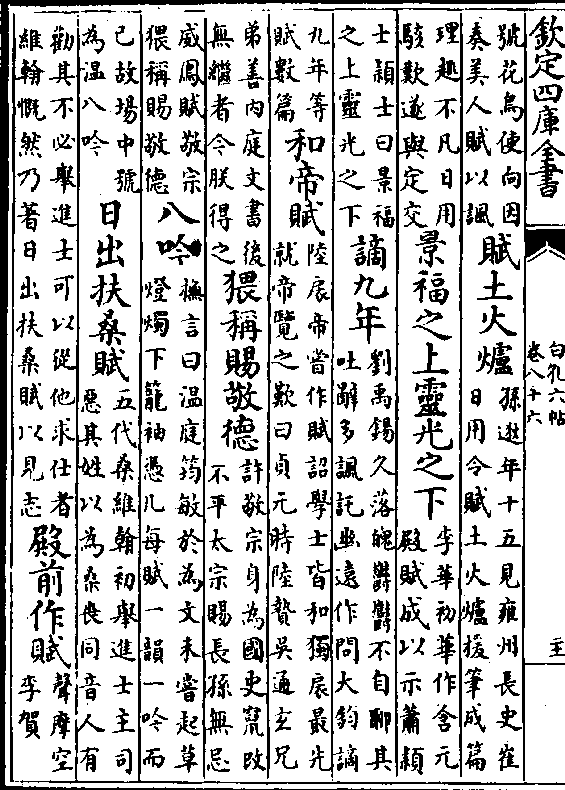 欽定四庫全書
白孔六帖
卷八十六
號花鳥使向因奏美人賦以諷 賦土火爐 孫逖年十五見雍州長史崔日用令賦土火爐援筆成篇
理趣不凡日用駭歎遂與定交 景福之上靈光之下 李華初華作含元殿賦成以示蕭穎
士穎士曰景福之上靈光之下 謫九年 劉禹錫久落魄鬱鬱不自聊其吐辭多諷託幽遠作問大鈞謫
九年等賦數篇 和帝賦 陸扆帝嘗作賦詔學士皆和獨扆最先就帝覽之歎曰貞元時陸贄吳通玄兄
弟善内庭文書後無繼者今朕得之 猥稱賜敬德 許敬宗身為國史竄改不平太宗賜長孫無忌
威鳳賦敬宗猥稱賜敬德 八吟 摭言曰温庭筠敏於為文未嘗起草燈燭下籠袖憑几每賦一韻一吟而
已故場中號為温八吟 日出扶桑賦 五代桑維翰初舉進士主司惡其姓以為桑喪同音人有
勸其不必舉進士可以從他求仕者維翰慨然乃著日出扶桑賦以見志 殿前作賦 聲摩空李賀